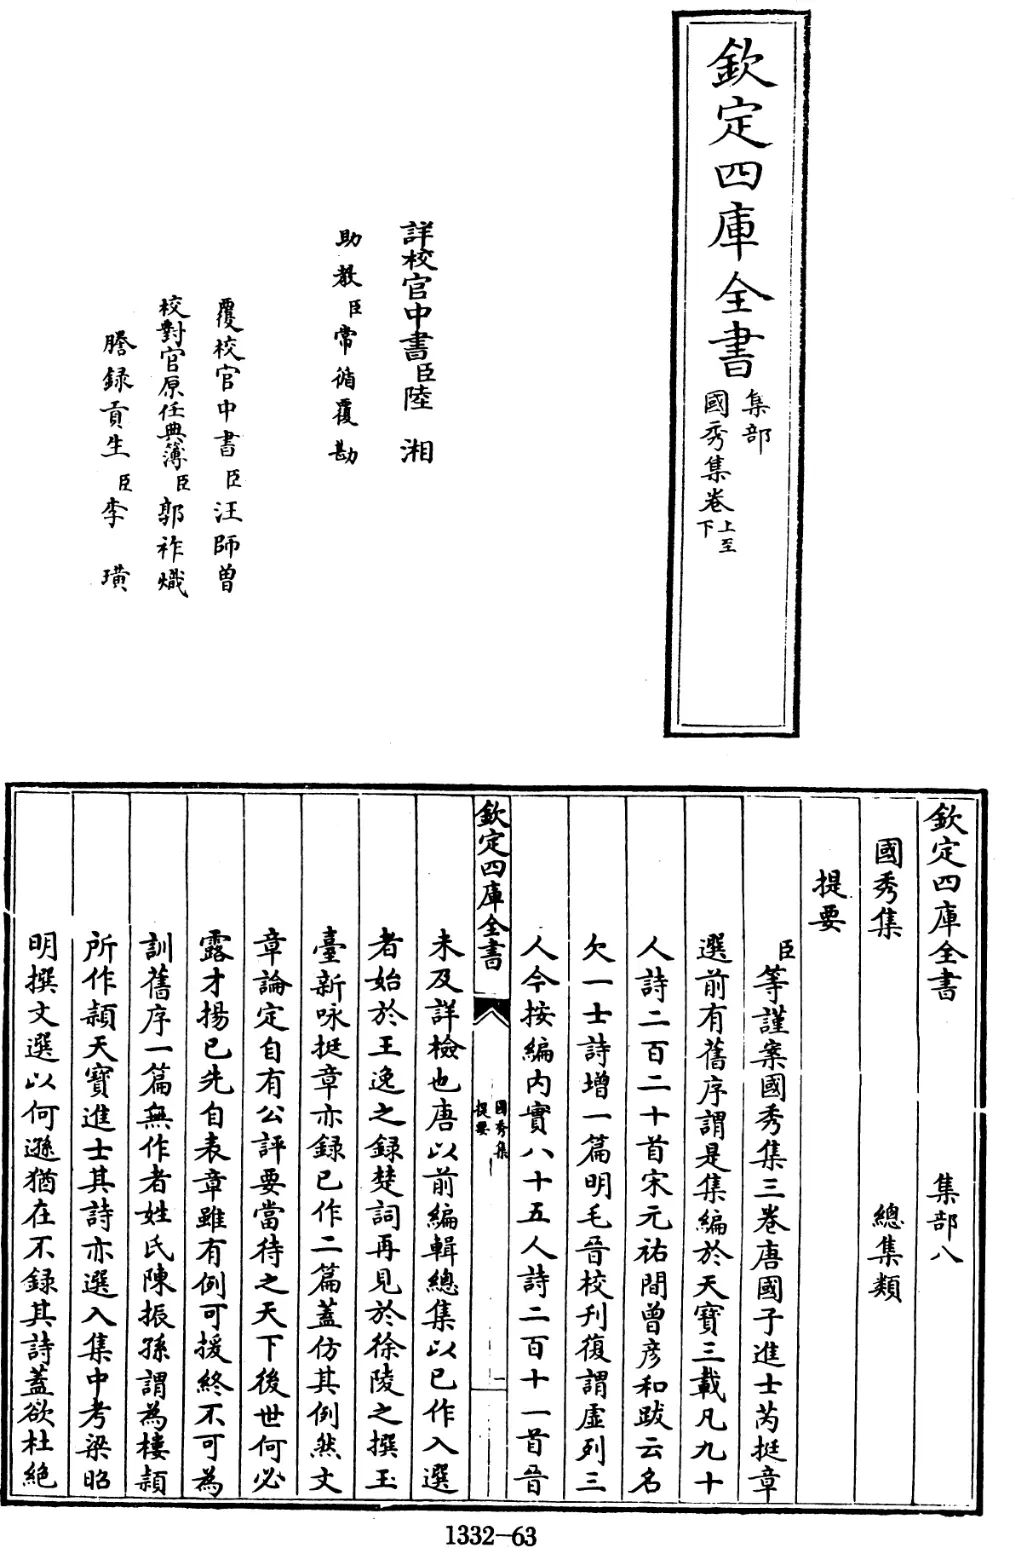 欽定四庫全書
集部
國秀集卷上至下
詳校官中書臣陸湘
助教臣常循覆勘
覆校官中書臣汪師曾
校對官原任典簿臣郭祚熾
謄錄貢生臣李璜
欽定四庫全書 集部八
國秀集 總集類
提要
臣等謹案國秀集三卷唐國子進士芮挺章
選前有舊序謂是集編於天寶三載凡九十
人詩二百二十首宋元祐間曾彦和跋云名
欠一士詩增一篇明毛晉校刊復謂虚列三
人今按編内實八十五人詩二百十一首晉
欽定四庫全書
國秀集
提要
一
未及詳檢也唐以前編輯總集以已作入選
者始於王逸之錄楚詞再見於徐陵之撰玉
臺新咏挺章亦錄已作二篇蓋仿其例然文
章論定自有公評要當待之天下後世何必
露才揚已先自表章雖有例可援終不可為
訓舊序一篇無作者姓氏陳振孫謂為樓頴
所作頴天寶進士其詩亦選入集中考梁昭
明撰文選以何遜猶在不錄其詩蓋欲杜絶
1332-63